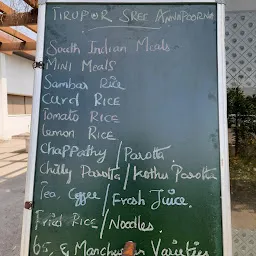 TIRUPUR SREE ANNAPOORNA
South Indian Meals
MINI MEALS
Sambar Rice
Curd RICE
Tomato RICE
Lemon RICE
Chappathy / Parotta
Chilly Parotta / Kothu Parotta
Tea, Coffee / Fresh Juice.
Fried Rice / Noodles.
65, & Manchurian Varieties